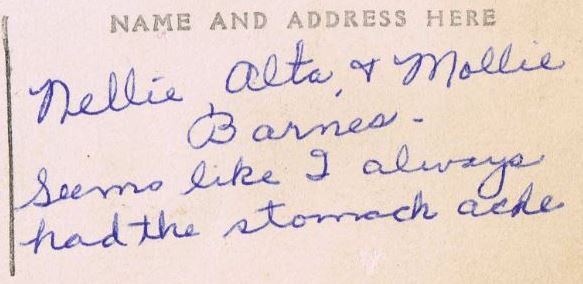 NAME AND ADDRESS HERE
Nellie, Alta, & Mollie
Barnes -
Seems like I always
had the stomach ache